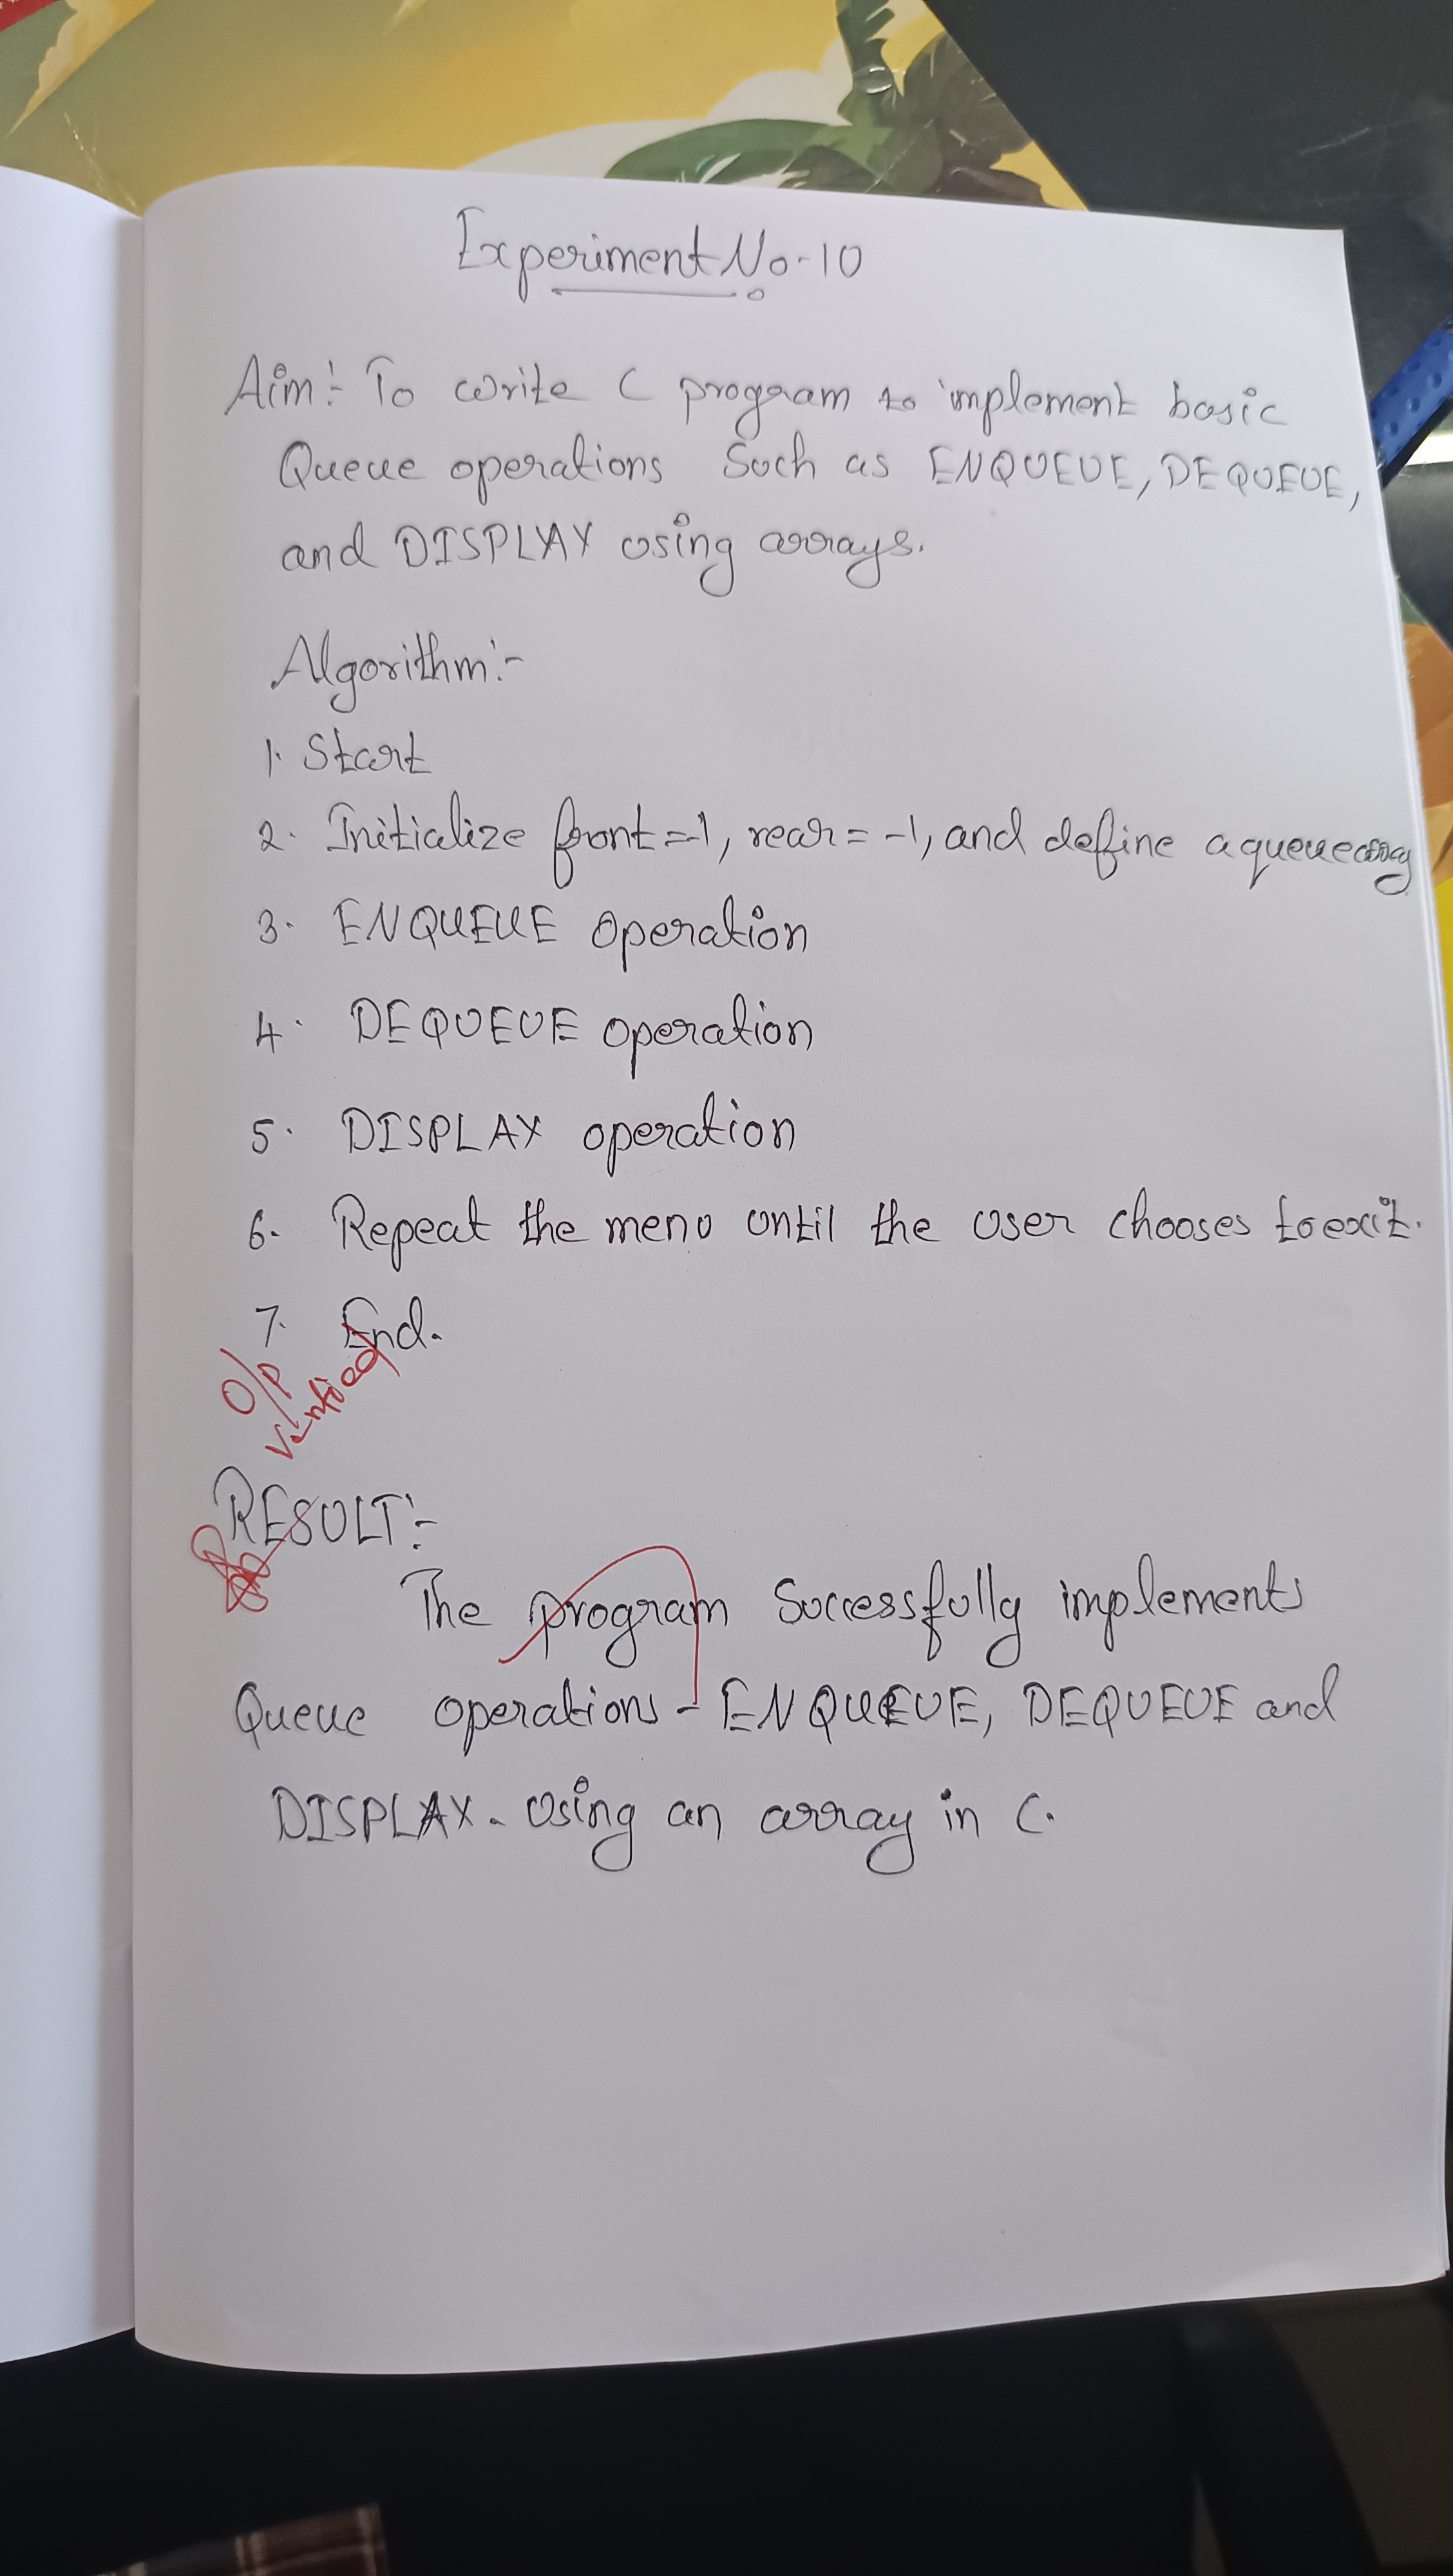 Experiment No-10
Aim:- To write C program to implement basic
Queue operations Such as ENQUEUE, DEQUEUE,
and DISPLAY using arrays.
Algorithm:-
1. Start
2. Initialize front=-1, rear=-1, and define a queue array
3. ENQUEUE operation
4. DEQUEUE operation
5. DISPLAY operation
6. Repeat the menu until the user chooses to exit.
7. End.
O/P
Verified
RESULT:-
The program Successfully implements
Queue operations - ENQUEUE, DEQUEUE and
DISPLAY - Using an array in C.